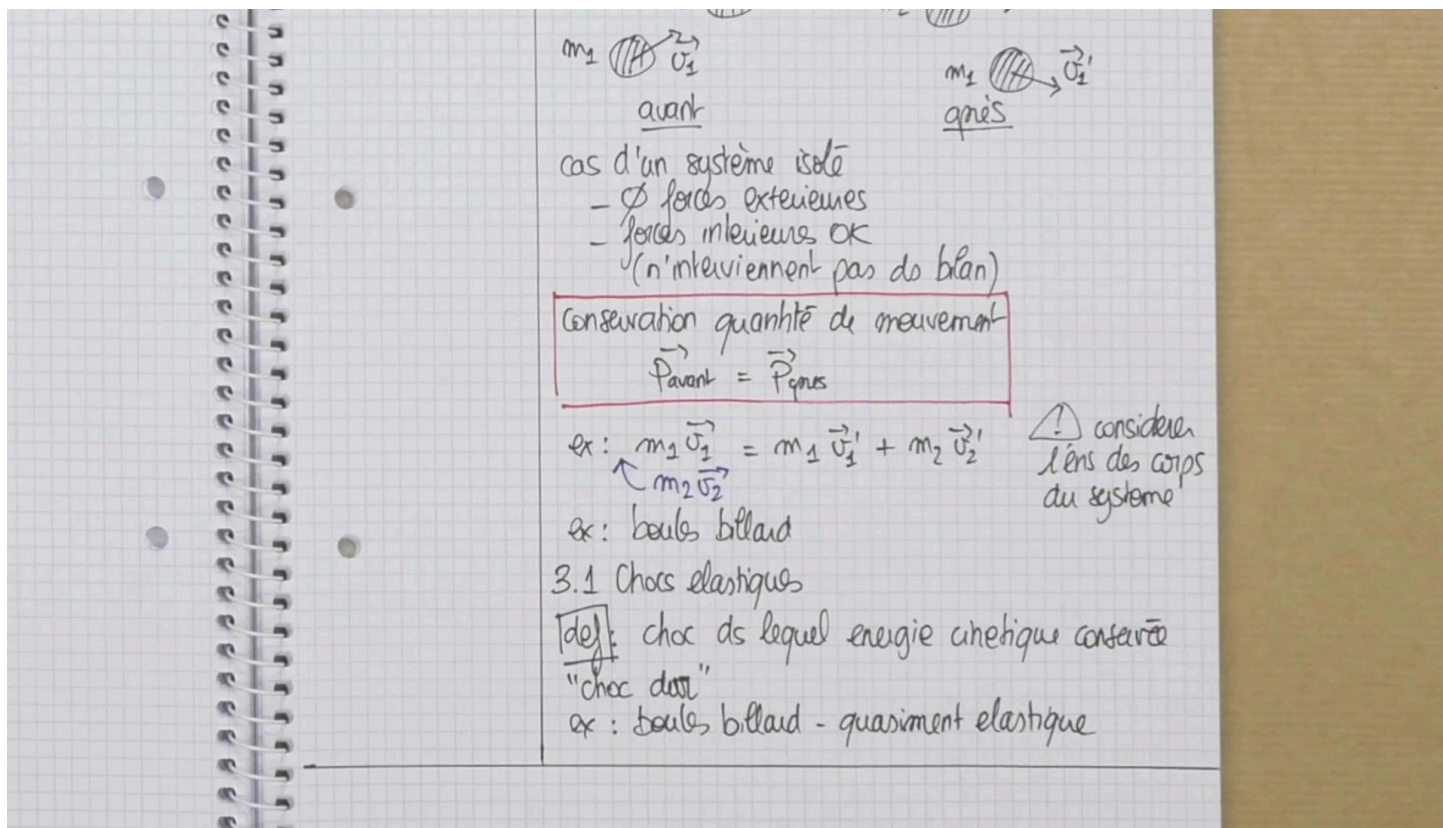 m₂
m₁ v⃗₁
m₁ v⃗₁'
avant
après
cas d'un système isolé
- ∅ forces exterieures
- forces interieures OK
(n'interviennent pas ds bilan)
Conservation quantité de mouvement
P⃗avant = P⃗apres
ex : m₁ v⃗₁ = m₁ v⃗₁' + m₂ v⃗₂'
m₂ v⃗₂
⚠ considerer
l'ens des corps
du systeme
ex : boules billard
3.1 Chocs elastiques
def : choc ds lequel energie cinetique conservée
"choc dur"
ex : boules billard - quasiment elastique